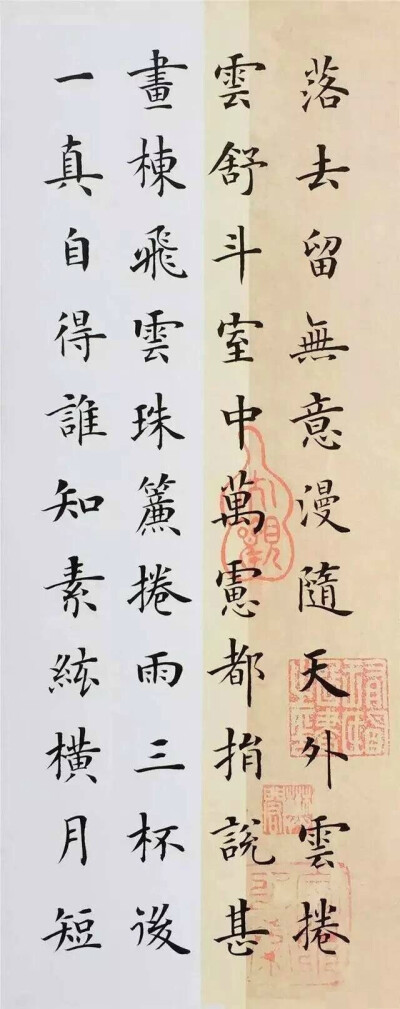 落去留無意漫隨天外雲捲
雲舒斗室中萬慮都捐說甚
畫棟飛雲珠簾捲雨三杯後
一真自得誰知素絃橫月短